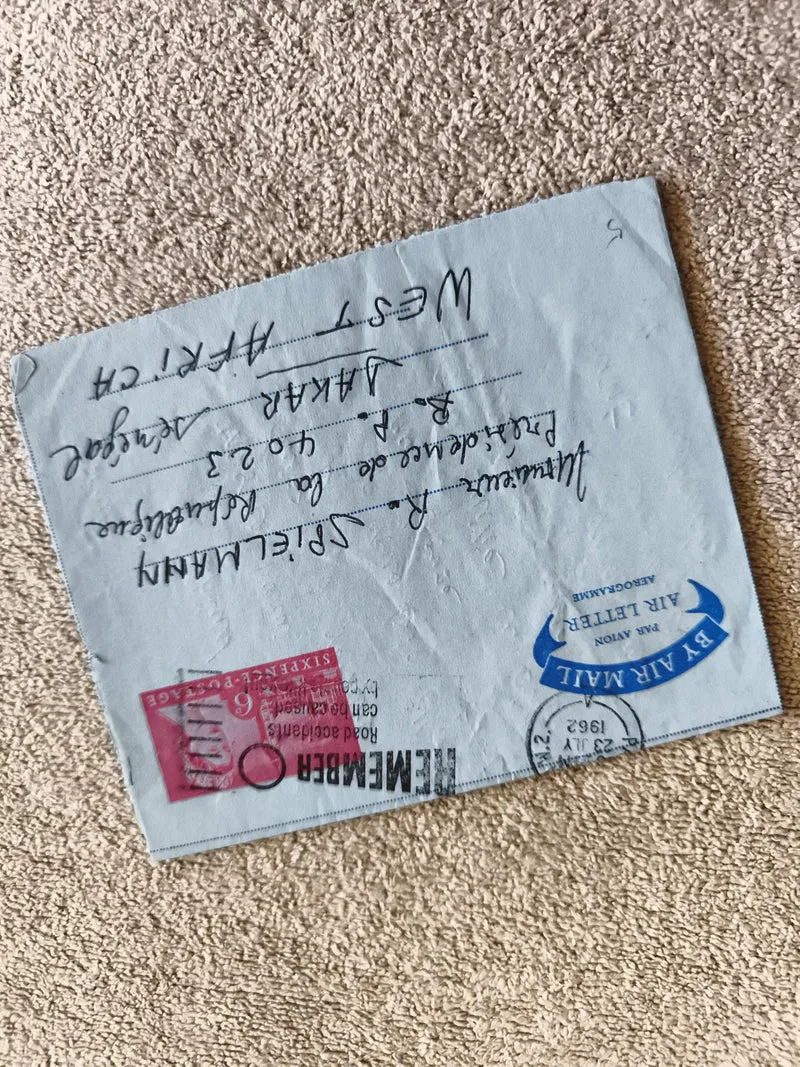 BY AIR MAIL
PAR AVION
AIR LETTER
AEROGRAMME
23 JLY
1962
REMEMBER
Road accidents
can be caused
by
6
SIXPENCE·POSTAGE
Monsieur R. SPIELMANN
Présidence de la République
B. P. 4023
DAKAR Sénégal
WEST AFRICA
5